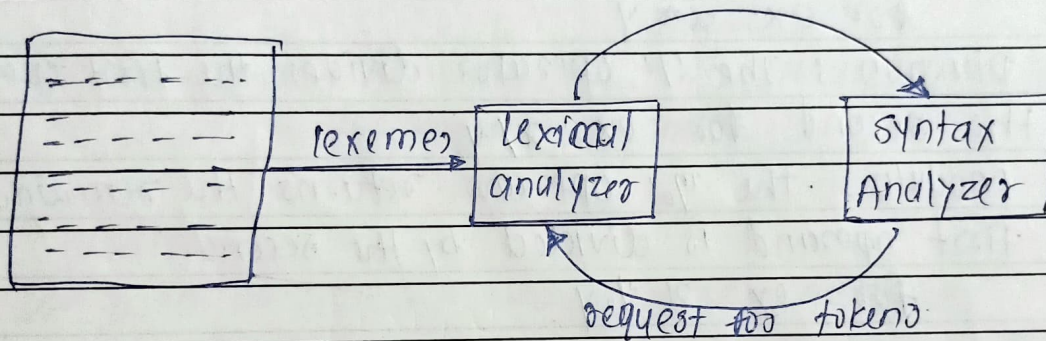 lexemes
lexical
analyzer
syntax
Analyzer
request for tokens